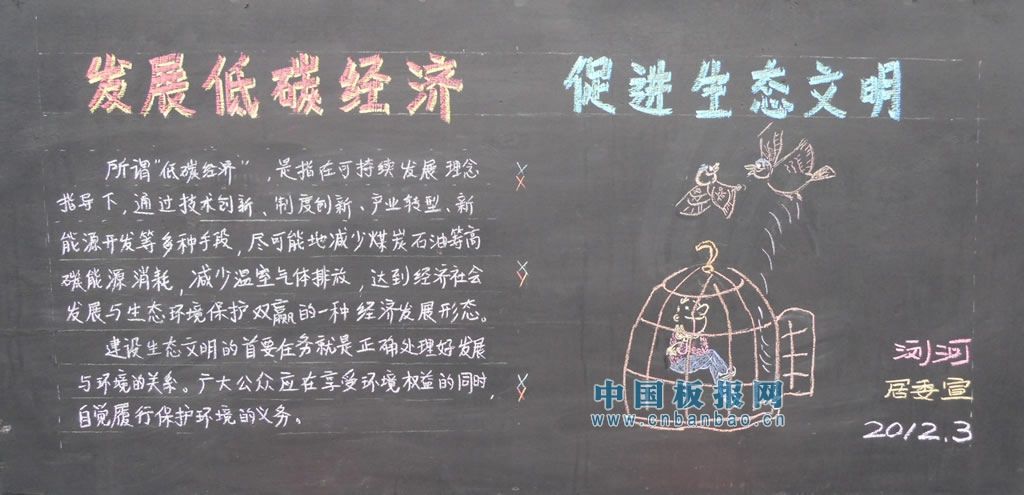 发展低碳经济 促进生态文明
所谓“低碳经济”,是指在可持续发展理念
指导下,通过技术创新、制度创新、产业转型、新
能源开发等多种手段,尽可能地减少煤炭石油等高
碳能源消耗,减少温室气体排放,达到经济社会
发展与生态环境保护双赢的一种经济发展形态。
建设生态文明的首要任务就是正确处理好发展
与环境的关系。广大公众应在享受环境权益的同时,
自觉履行保护环境的义务。
浏河
居委宣
2012.3
中国板报网
www.cnbanbao.cn